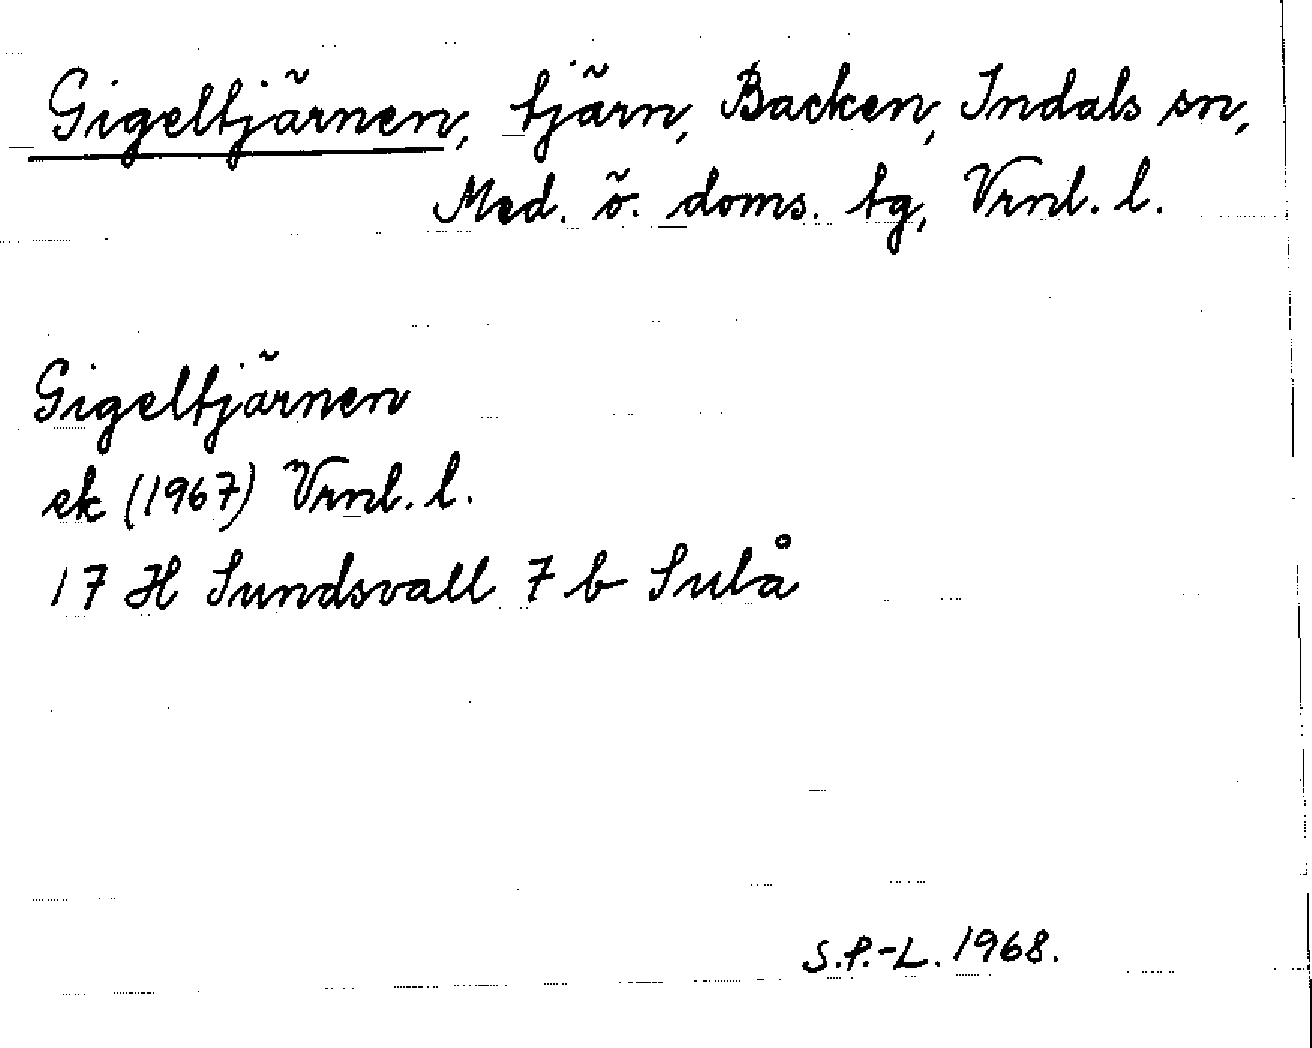 Gigeltjärnen, tjärn, Backen, Indals sn,
Med. ö. doms. tg, Vrnl. l.
Gigeltjärnen
ek (1967) Vrnl. l.
17 H Sundsvall 7 b Sulå
S.P.-L. 1968.